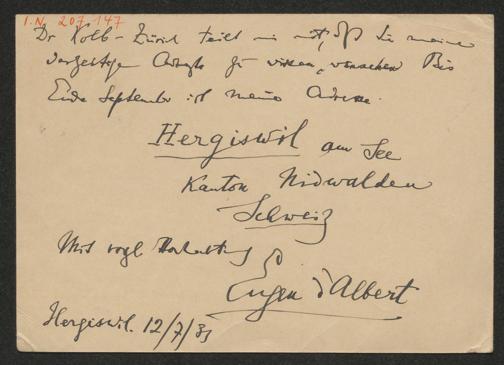 I.N. 207.147
Dr Kolb - Zürich teilt mir mit, dß Sie meine
Adresse zu wissen, wünschen Bis
Ende September ist meine Adresse.
Hergiswil am See
Kanton Nidwalden
Schweiz
Mit vorzgl Hochachtung
Eugen d'Albert
Hergiswil. 12/7/31